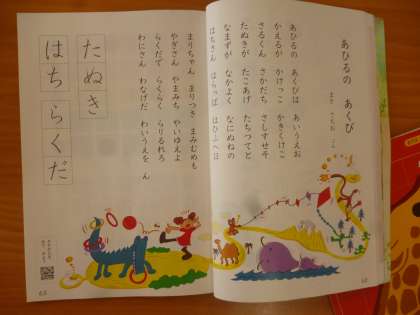 あひるの　あくび
まき　さちお　さく
あひるの　あくびは　あいうえお
かえるが　かけっこ　かきくけこ
さるくん　さかだち　さしすせそ
たぬきが　たこあげ　たちつてと
なまずが　なかよく　なにぬねの
はちさん　はらっぱ　はひふへほ
まりちゃん　まりつき　まみむめも
やぎさん　やまみち　やいゆえよ
らくだで　らくらく　らりるれろ
わにさん　わなげだ　わいうえを　ん
たぬき
らくだ
はち